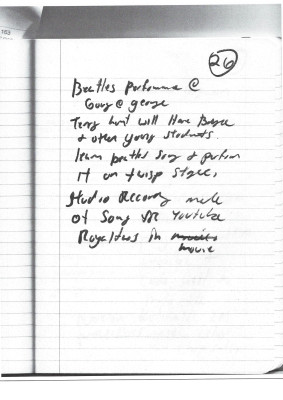 163
26
Beatles performance @
Gary @ george
Terry hunt will Have Bryce
& other young students
learn beatles song & perform
it on twisp stage,
Studio Recording made
of song for Youtube
Royalties in movies
movie